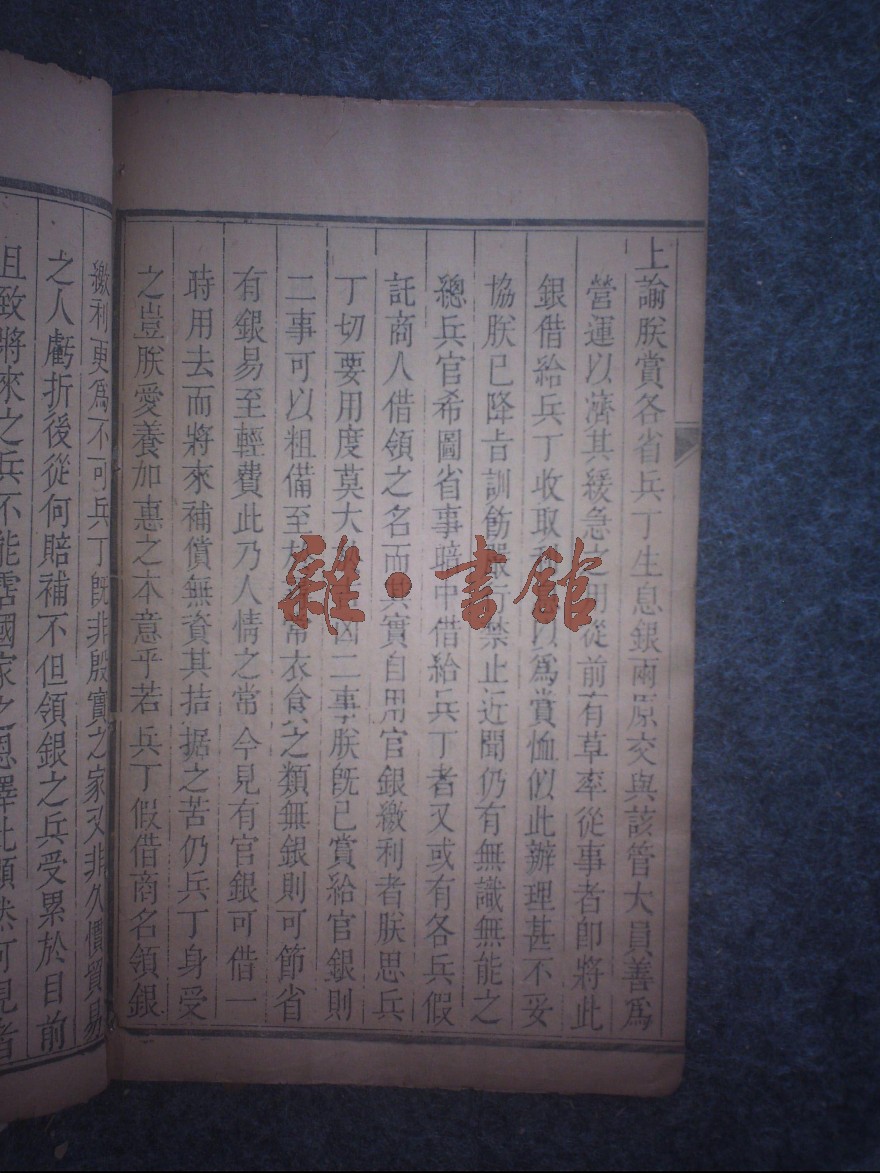 上諭朕賞各省兵丁生息銀兩原交與該管大員善爲
營運以濟其緩急之用從前有草率從事者卽將此
銀借給兵丁收取利以爲賞恤似此辦理甚不妥
協朕已降旨訓飭嚴行禁止近聞仍有無識無能之
總兵官希圖省事暗中借給兵丁者又或有各兵假
託商人借領之名而其實自用官銀繳利者朕思兵
丁切要用度莫大二事朕旣已賞給官銀則
二事可以粗備至於常衣食之類無銀則可節省
有銀易至輕費此乃人情之常今見有官銀可借一
時用去而將來補償無資其拮据之苦仍兵丁身受
之豈朕愛養加惠之本意乎若兵丁假借商名領銀
繳利更爲不可兵丁旣非殷實之家又非久慣貿易
之人虧折後從何賠補不但領銀之兵受累於目前
且致將來之兵不能霑國家之恩澤此顯然可見者
雜·書館